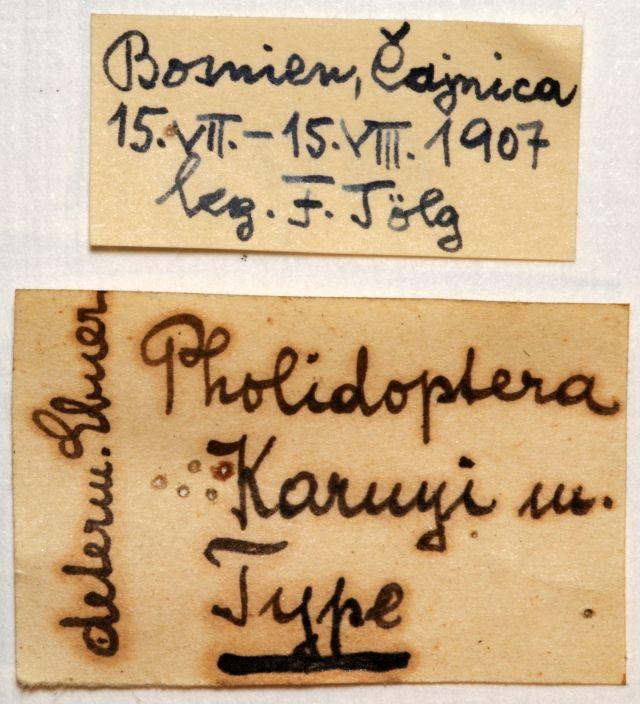 Bosnien, Čajnica
15.VII.–15.VIII.1907
leg. F. Tölg
determ. Ebner
Pholidoptera
Karnyi m.
Type